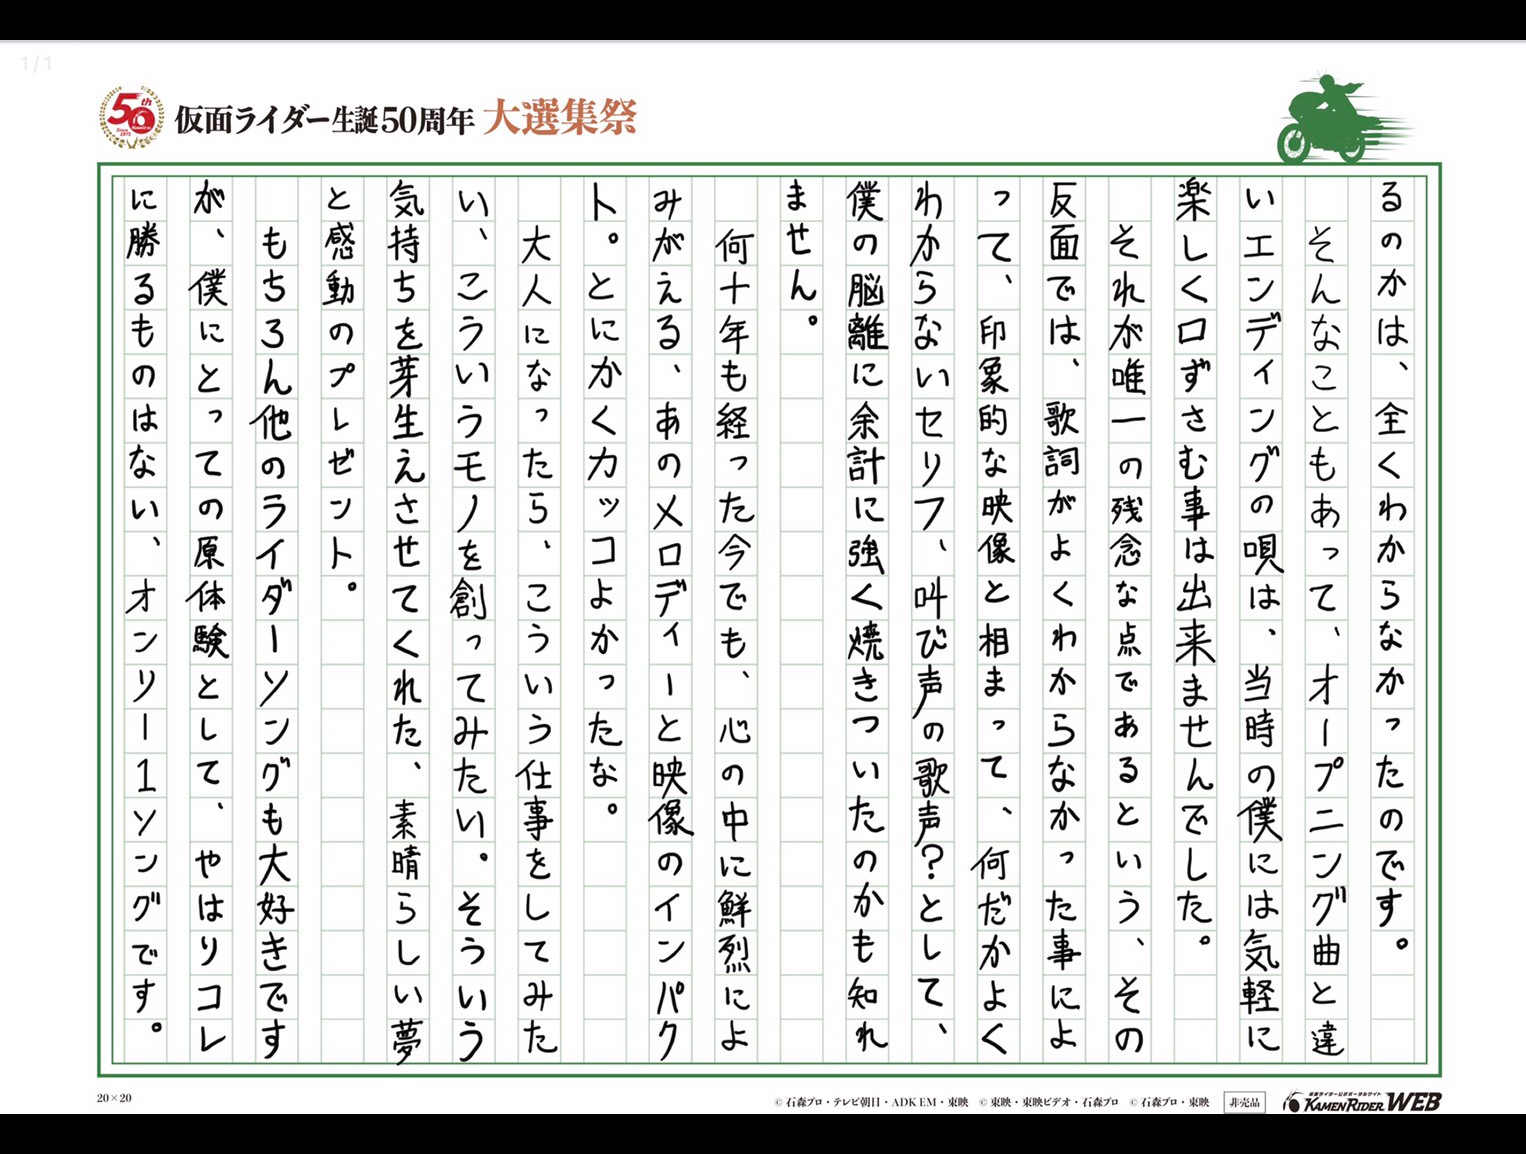 1/1
50th
Since 1971
仮面ライダー生誕50周年 大選集祭
るのかは、全くわからなかったのです。
そんなこともあって、オープニング曲と違
いエンディングの唄は、当時の僕には気軽に
楽しく口ずさむ事は出来ませんでした。
それが唯一の残念な点であるという、その
反面では、歌詞がよくわからなかった事によ
って、印象的な映像と相まって、何だかよく
わからないセリフ、叫び声の歌声?として、
僕の脳離に余計に強く焼きついたのかも知れ
ません。
何十年も経った今でも、心の中に鮮烈によ
みがえる、あのメロディーと映像のインパク
ト。とにかくカッコよかったな。
大人になったら、こういう仕事をしてみた
い、こういうモノを創ってみたい。そういう
気持ちを芽生えさせてくれた、素晴らしい夢
と感動のプレゼント。
もちろん他のライダーソングも大好きです
が、僕にとっての原体験として、やはりコレ
に勝るものはない、オンリー1ソングです。
20×20
©石森プロ・テレビ朝日・ADK EM・東映 ©東映・東映ビデオ・石森プロ ©石森プロ・東映
非売品
仮面ライダー公式ポータルサイト
KAMEN RIDER WEB